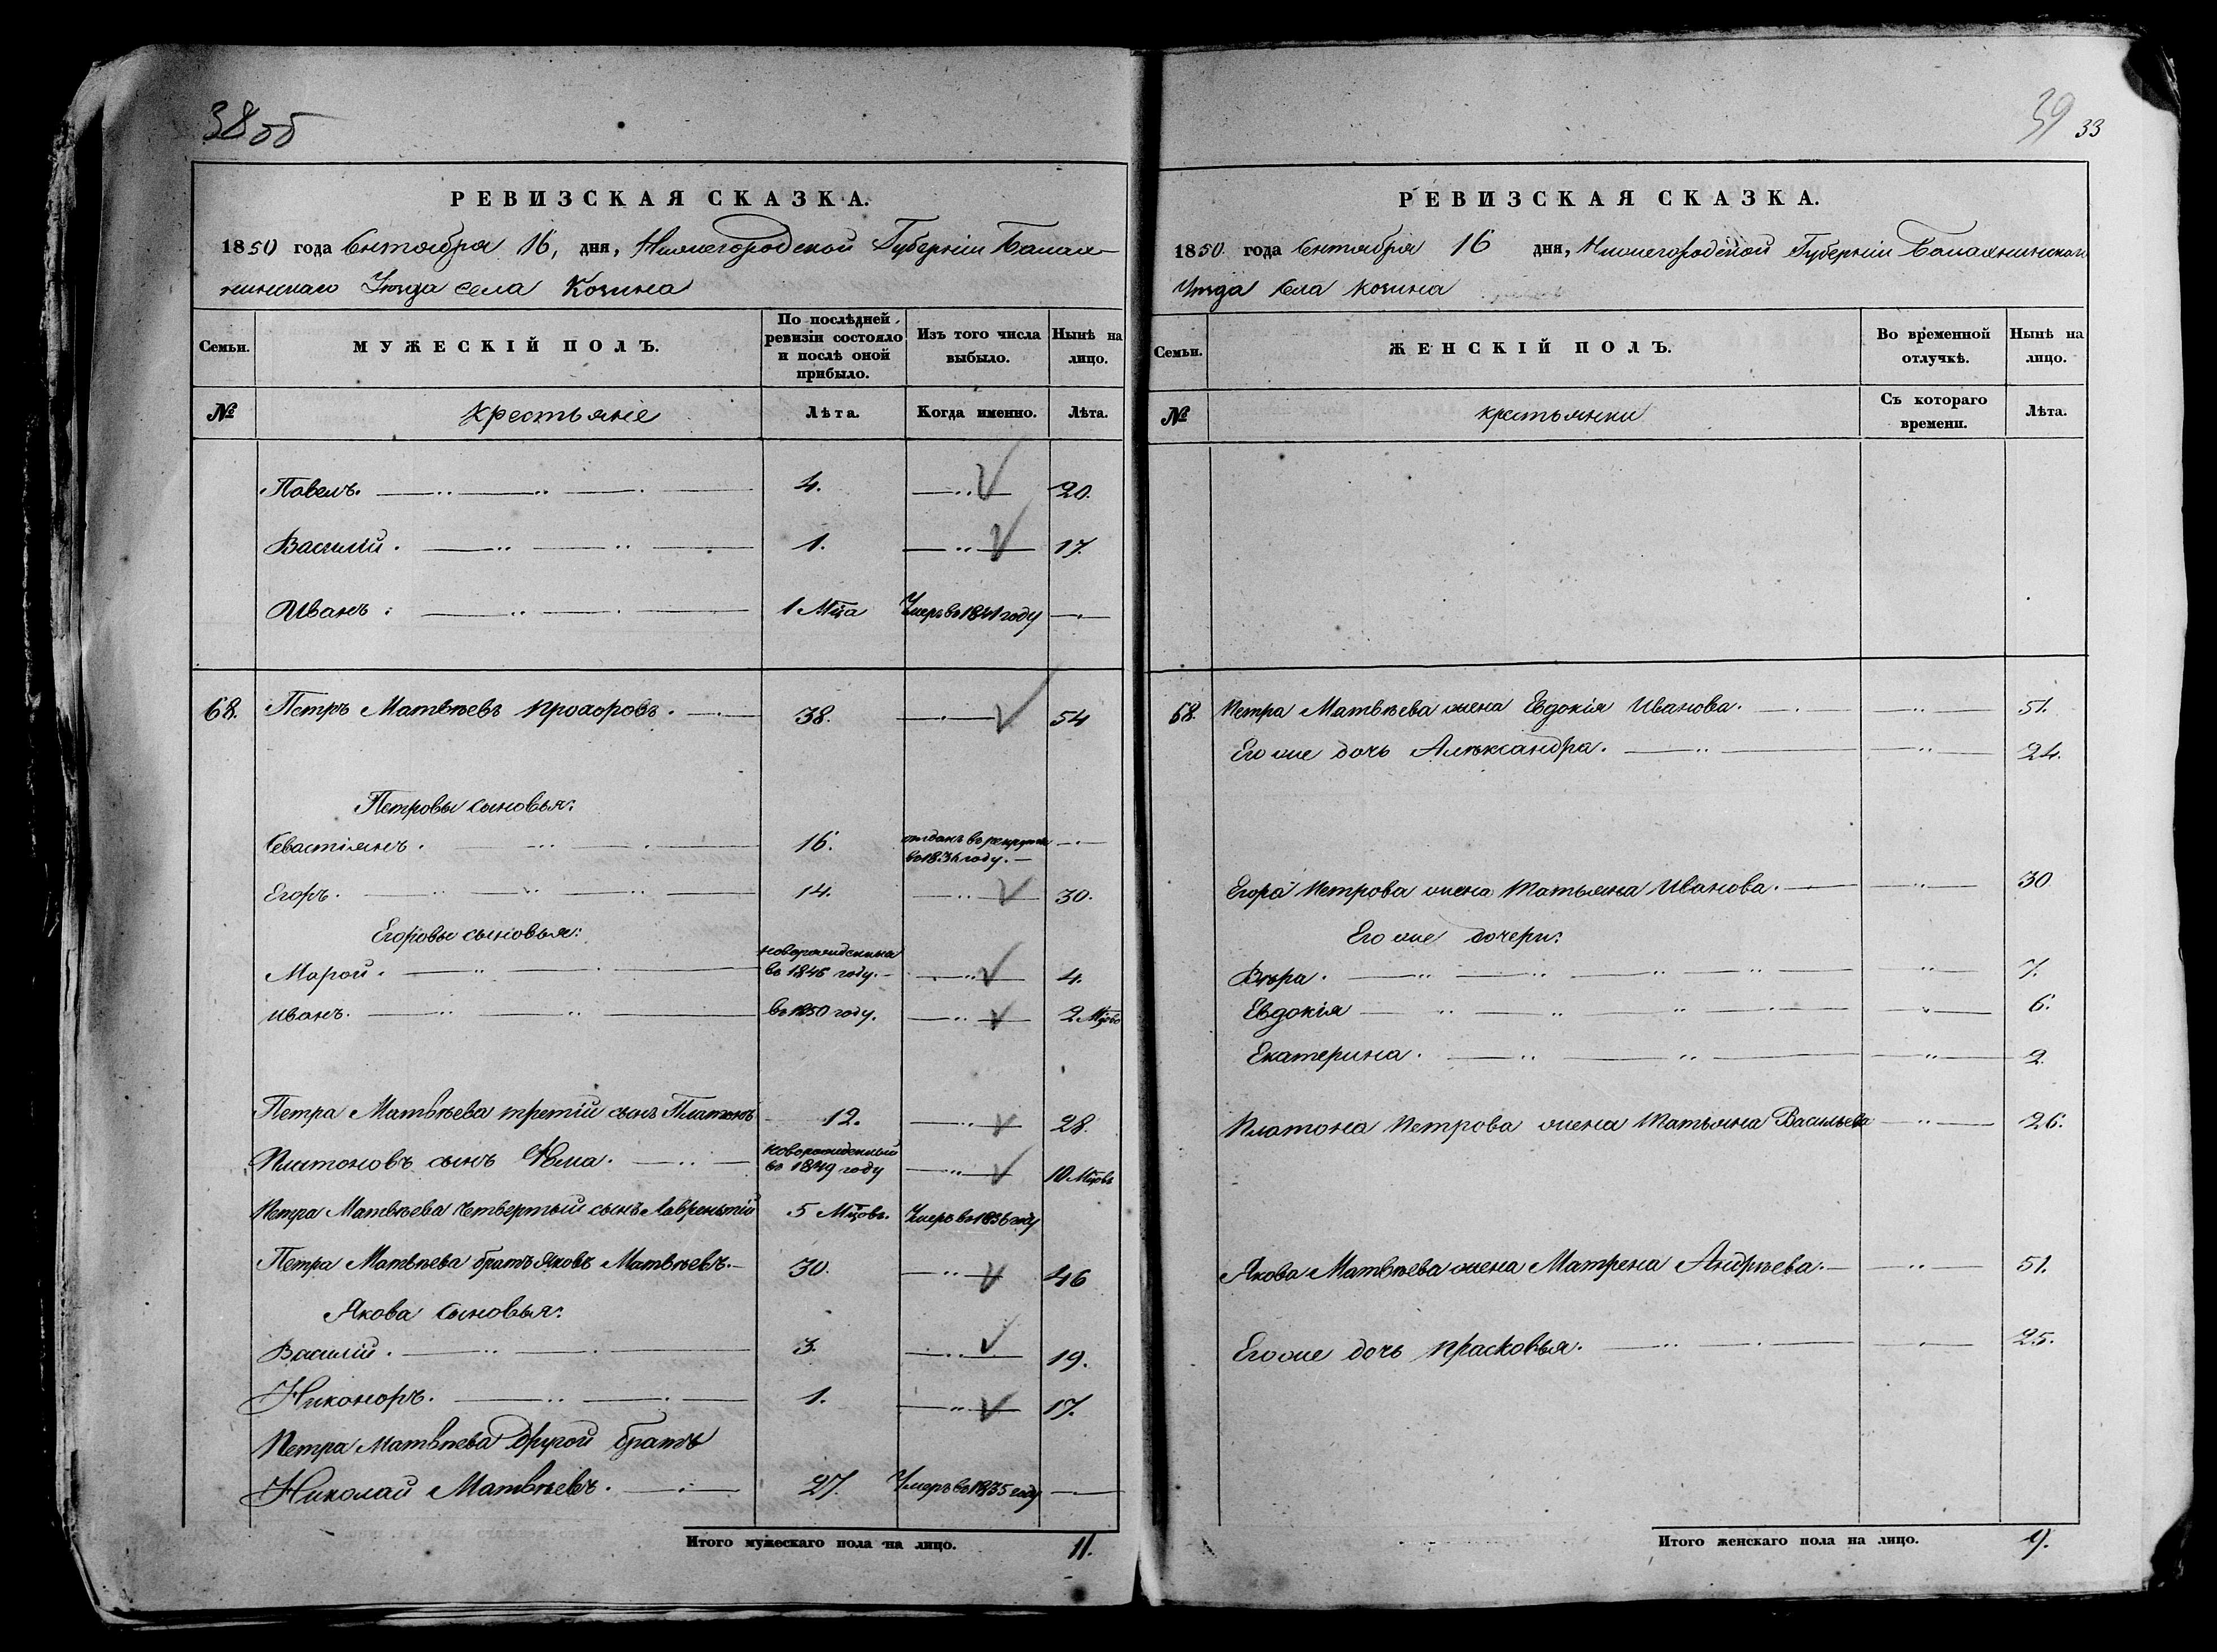 38 об
РЕВИЗСКАЯ СКАЗКА.
1850 года Сентября 16, дня, Нижегородской Губерніи Балах-
нинскаго Уѣзда села Козина
Семьи.
МУЖЕСКІЙ ПОЛЪ.
По послѣдней ревизіи состояло и послѣ оной прибыло.
Изъ того числа выбыло.
Нынѣ на лицо.
№
Крестьяне
Лѣта.
Когда именно.
Лѣта.
Павелъ. 4. 20.
Василій. 1. 17.
Иванъ. 1 Мца Умеръ въ 1841 году
68. Петръ Матвѣевъ Прохоровъ. 38. 54
Петровы сыновья:
Севастіянъ. 16. отданъ въ рекруты
году.
Егоръ. 14. 30.
Егоровы сыновья:
новорожденныя
Марой. въ 1846 году. 4.
Иванъ. въ 1850 году. 2 Мцовъ
Петра Матвѣева третій сынъ Платонъ 12. 28.
новорожденный
Платоновъ сынъ Фома. въ 1849 году 10 Мцовъ
Петра Матвѣева четвертый сынъ Лаврентій 5 Мцовъ. Умеръ въ 1836 году
Петра Матвѣева братъ Яковъ Матвѣевъ. 30. 46
Якова сыновья:
Василій. 3. 19.
Никоноръ. 1. 17.
Петра Матвѣева другой братъ
Николай Матвѣевъ. 27. Умеръ въ 1835 году
Итого мужескаго пола на лицо. 11.
39 33
РЕВИЗСКАЯ СКАЗКА.
1850 года Сентября 16 дня, Нижегородской Губерніи Балахнинскаго
Уѣзда Села Козина
Семьи.
ЖЕНСКІЙ ПОЛЪ.
Во временной отлучкѣ.
Нынѣ на лицо.
№
крестьянки
Съ котораго времени.
Лѣта.
68. Петра Матвѣева жена Евдокія Иванова. 51.
Его же дочь Александра. 24.
Егора Петрова жена Татьяна Иванова. 30
Его же дочери:
Вѣра. 7.
Евдокія 6.
Екатерина. 2.
Платона Петрова жена Татьяна Васильева 26.
Якова Матвѣева жена Матрена Андрѣева. 51.
Его же дочь Прасковья. 25.
Итого женскаго пола на лицо. 9.